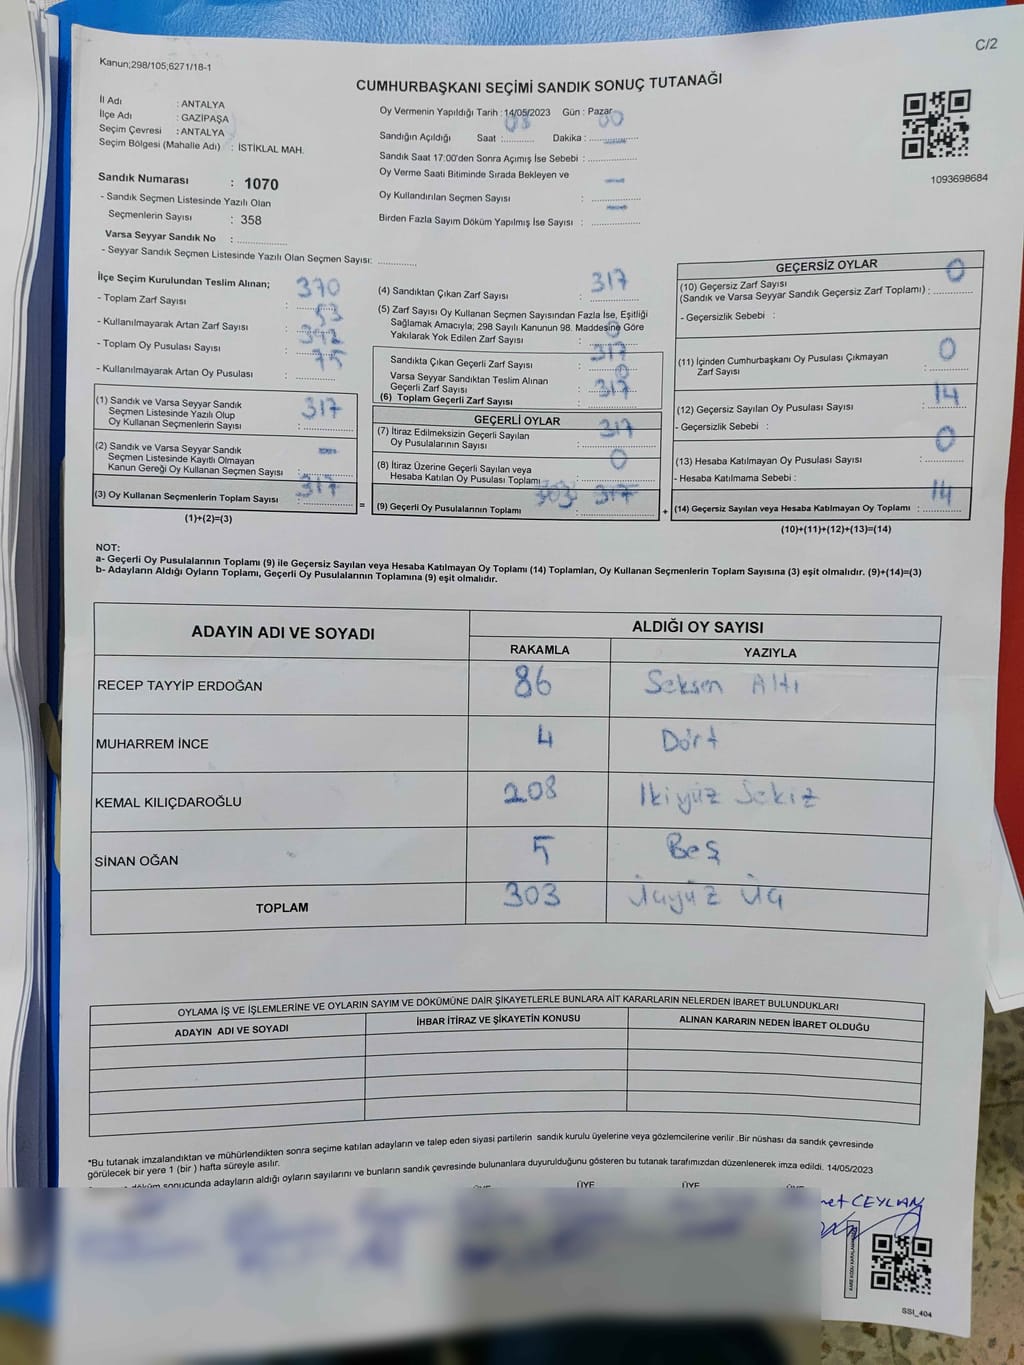 C/2
Kanun;298/105;6271/18-1
CUMHURBAŞKANI SEÇİMİ SANDIK SONUÇ TUTANAĞI
İl Adı : ANTALYA
İlçe Adı : GAZİPAŞA
Seçim Çevresi : ANTALYA
Seçim Bölgesi (Mahalle Adı) : İSTİKLAL MAH.
Sandık Numarası : 1070
- Sandık Seçmen Listesinde Yazılı Olan
Seçmenlerin Sayısı : 358
Varsa Seyyar Sandık No : ..............
- Seyyar Sandık Seçmen Listesinde Yazılı Olan Seçmen Sayısı: ............
Oy Vermenin Yapıldığı Tarih : 14/05/2023 Gün : Pazar
Sandığın Açıldığı Saat : 08 Dakika : 00
Sandık Saat 17:00'den Sonra Açımış İse Sebebi : ..............
Oy Verme Saati Bitiminde Sırada Bekleyen ve
Oy Kullandırılan Seçmen Sayısı : —
Birden Fazla Sayım Döküm Yapılmış İse Sayısı : —
1093698684
İlçe Seçim Kurulundan Teslim Alınan;
- Toplam Zarf Sayısı : 370
- Kullanılmayarak Artan Zarf Sayısı : 53
- Toplam Oy Pusulası Sayısı : 392
- Kullanılmayarak Artan Oy Pusulası : 75
(1) Sandık ve Varsa Seyyar Sandık
Seçmen Listesinde Yazılı Olup
Oy Kullanan Seçmenlerin Sayısı : 317
(2) Sandık ve Varsa Seyyar Sandık
Seçmen Listesinde Kayıtlı Olmayan
Kanun Gereği Oy Kullanan Seçmen Sayısı : —
(3) Oy Kullanan Seçmenlerin Toplam Sayısı : 317
(1)+(2)=(3)
=
(4) Sandıktan Çıkan Zarf Sayısı : 317
(5) Zarf Sayısı Oy Kullanan Seçmen Sayısından Fazla İse, Eşitliği
Sağlamak Amacıyla; 298 Sayılı Kanunun 98. Maddesine Göre
Yakılarak Yok Edilen Zarf Sayısı : 0
Sandıkta Çıkan Geçerli Zarf Sayısı : 317
Varsa Seyyar Sandıktan Teslim Alınan
Geçerli Zarf Sayısı : 0
(6) Toplam Geçerli Zarf Sayısı : 317
GEÇERLİ OYLAR
(7) İtiraz Edilmeksizin Geçerli Sayılan
Oy Pusulalarının Sayısı : 317
(8) İtiraz Üzerine Geçerli Sayılan veya
Hesaba Katılan Oy Pusulası Toplamı : 0
(9) Geçerli Oy Pusulalarının Toplamı : 303 317
+
GEÇERSİZ OYLAR
(10) Geçersiz Zarf Sayısı
(Sandık ve Varsa Seyyar Sandık Geçersiz Zarf Toplamı) : 0
- Geçersizlik Sebebi :
(11) İçinden Cumhurbaşkanı Oy Pusulası Çıkmayan
Zarf Sayısı : 0
(12) Geçersiz Sayılan Oy Pusulası Sayısı : 14
- Geçersizlik Sebebi :
(13) Hesaba Katılmayan Oy Pusulası Sayısı : 0
- Hesaba Katılmama Sebebi :
(14) Geçersiz Sayılan veya Hesaba Katılmayan Oy Toplamı : 14
(10)+(11)+(12)+(13)=(14)
NOT:
a- Geçerli Oy Pusulalarının Toplamı (9) ile Geçersiz Sayılan veya Hesaba Katılmayan Oy Toplamı (14) Toplamları, Oy Kullanan Seçmenlerin Toplam Sayısına (3) eşit olmalıdır. (9)+(14)=(3)
b- Adayların Aldığı Oyların Toplamı, Geçerli Oy Pusulalarının Toplamına (9) eşit olmalıdır.
ADAYIN ADI VE SOYADI ALDIĞI OY SAYISI
RAKAMLA YAZIYLA
RECEP TAYYİP ERDOĞAN 86 Seksen Altı
MUHARREM İNCE 4 Dört
KEMAL KILIÇDAROĞLU 208 İkiyüz Sekiz
SİNAN OĞAN 5 Beş
TOPLAM 303 Üçyüz Üç
OYLAMA İŞ VE İŞLEMLERİNE VE OYLARIN SAYIM VE DÖKÜMÜNE DAİR ŞİKAYETLERLE BUNLARA AİT KARARLARIN NELERDEN İBARET BULUNDUKLARI
ADAYIN ADI VE SOYADI İHBAR İTİRAZ VE ŞİKAYETİN KONUSU ALINAN KARARIN NEDEN İBARET OLDUĞU
*Bu tutanak imzalandıktan ve mühürlendikten sonra seçime katılan adayların ve talep eden siyasi partilerin sandık kurulu üyelerine veya gözlemcilerine verilir .Bir nüshası da sandık çevresinde
görülecek bir yere 1 (bir ) hafta süreyle asılır.
döküm sonucunda adayların aldığı oyların sayılarını ve bunların sandık çevresinde bulunanlara duyurulduğunu gösteren bu tutanak tarafımızdan düzenlenerek imza edildi. 14/05/2023
ÜYE ÜYE
CEYLAN
SSI_404